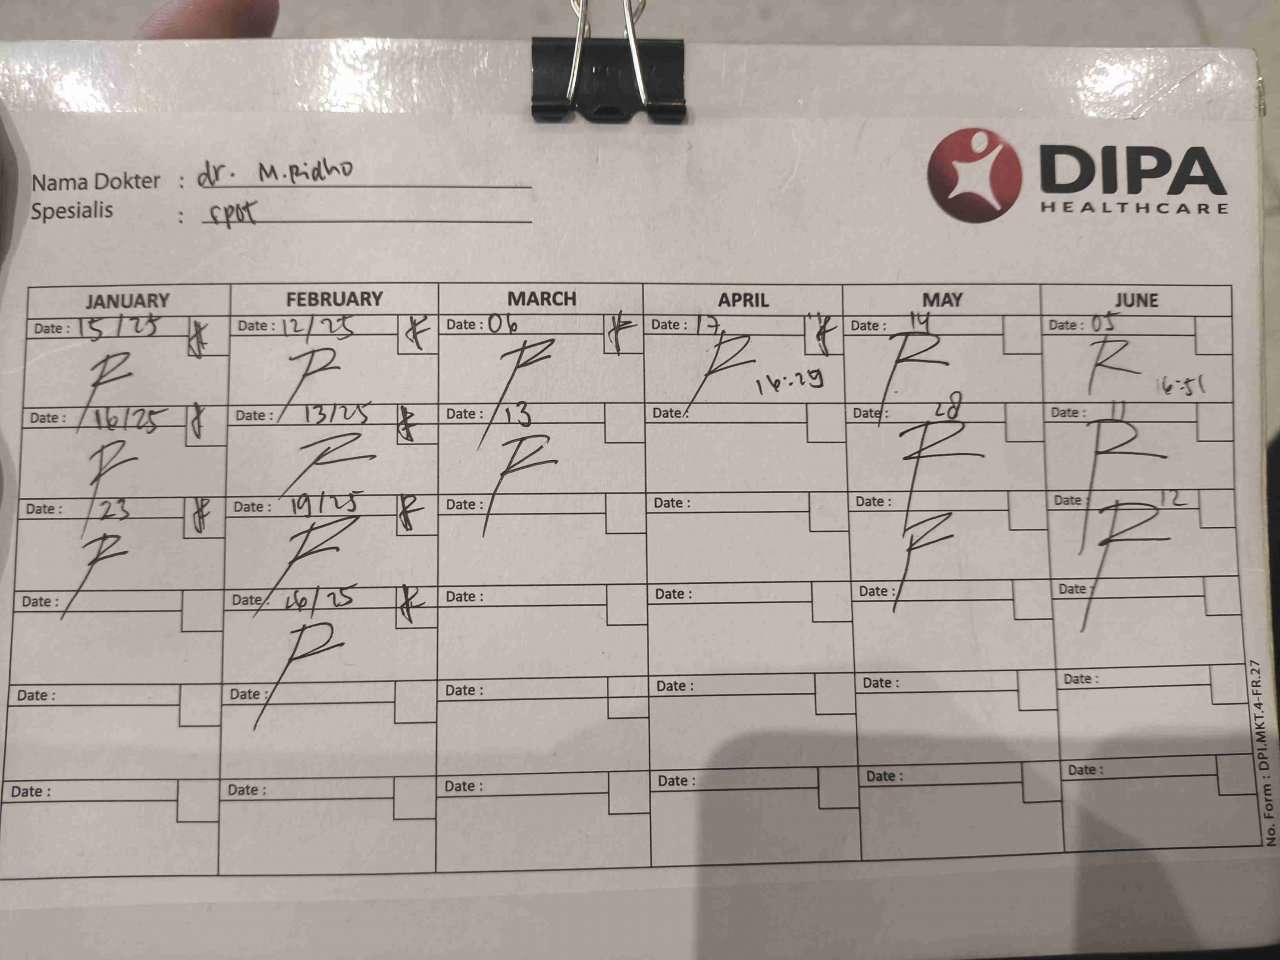 Nama Dokter : dr. M. Ridho
Spesialis : spot
DIPA
HEALTHCARE
JANUARY FEBRUARY MARCH APRIL MAY JUNE
Date : 15/25 Date : 12/25 Date : 06 Date : 17 Date : 14 Date : 05
R R R R 16:29 R R 16:51
Date : 16/25 Date : 13/25 Date : 13 Date : Date : 28 Date : 11
R R R R R
Date : 23 Date : 19/25 Date : Date : Date : Date : 12
R R R R
Date : Date : 26/25 Date : Date : Date : Date :
R
Date : Date : Date : Date : Date : Date :
Date : Date : Date : Date : Date : Date :
No. Form : DPI.MKT.4-FR.27